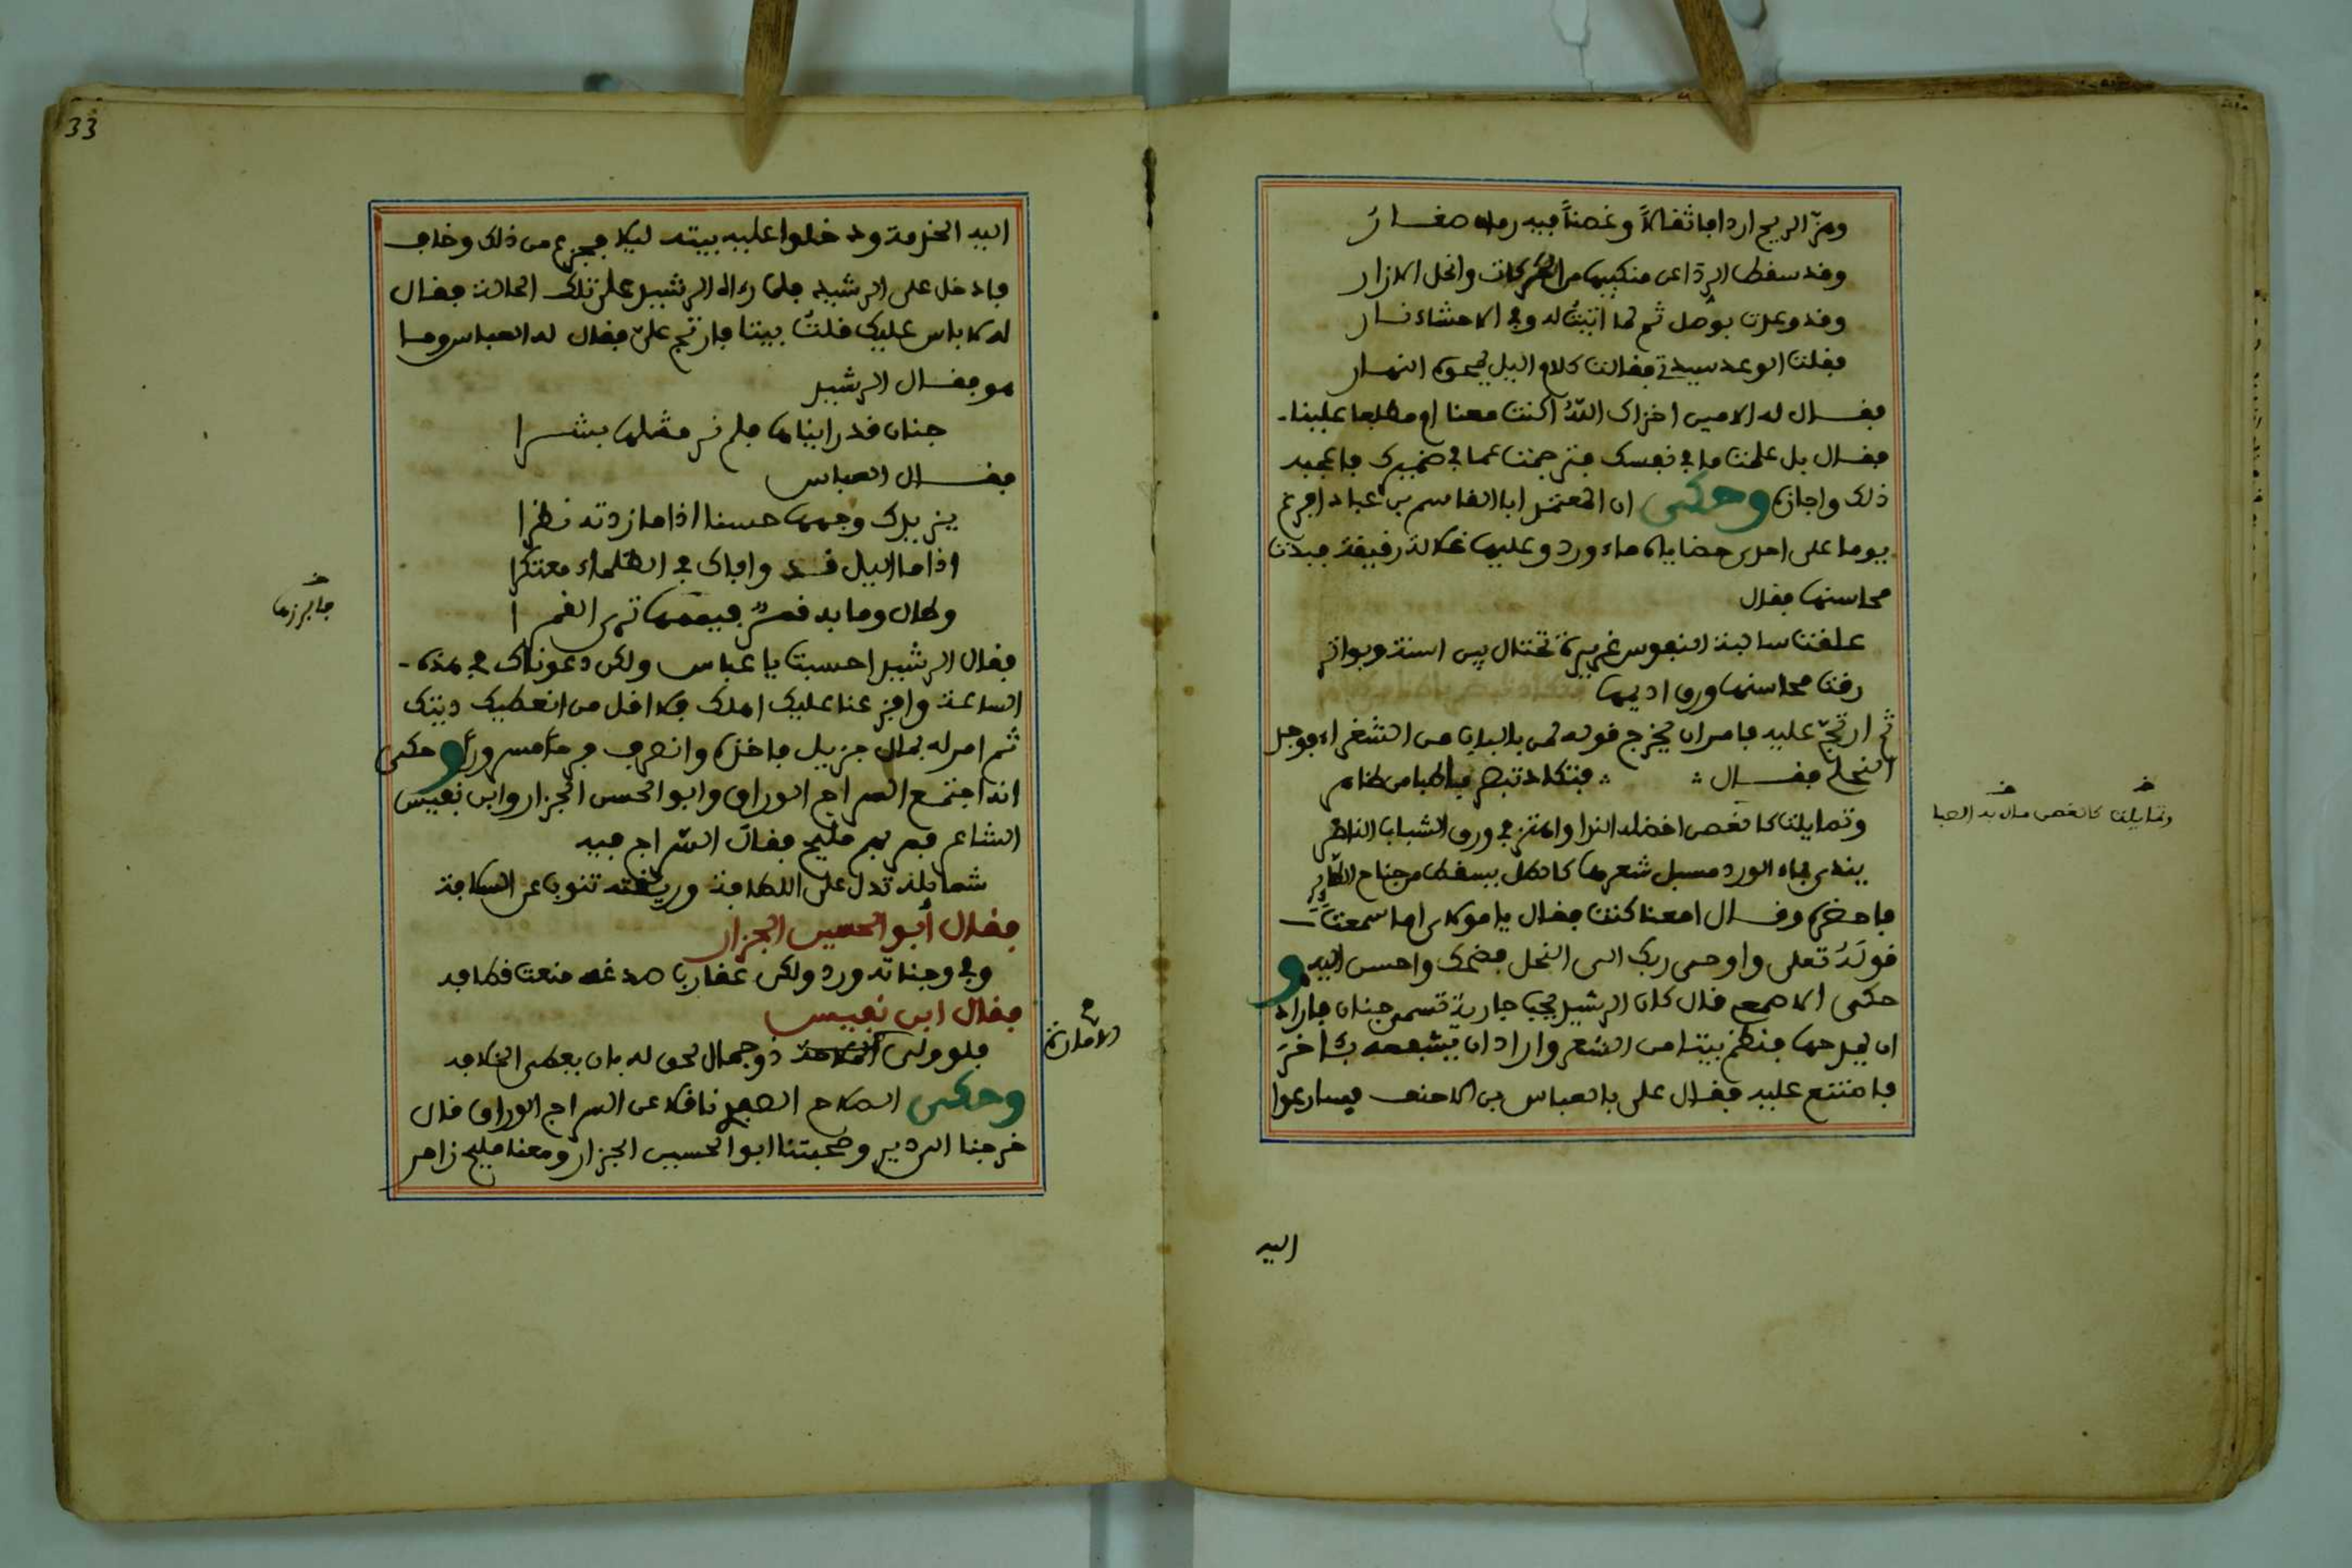 وهز الريح اردافا ثقالاً وغصناً فيه رمان صغار
وقد سقط الردا عن منكبيها من التحركات وانحل الازار
وقد وعدت بوصل ثم لما اتيت له وفي الاحشاء نار
فقلت الوعد سيدتي فقالت كلام اليل يمحوه النهار
فقال له الامين اخزاك اللّه اكنت معنا ام مطلعا علينا
فقال بل علمت ما في نفسك فترجمت عما في ضميرك فاعجبه
ذلك واجازه وحكى ان المعتمد ابا القاسم بن عباد افرغ
يوما على احدى حضاياه ماء ورد وعليها غلالة رفيقة فبدت
محاسنها فقال
علقت سالبة النفوس غريرة تختال بين اسنة وبواتر
رقت محاسنها ورق اديمها
ثم ارتجّ عليه فامر ان يخرج قوله لمن بالباب من الشعراء فوجد
النحلي فقال فتكاد تبصر باطنا من ظاهر
وتمايلت كالغصن اخضله الندا واهتز في ورق الشباب الناظر
يندى بماء الورد مسبل شعرها كالطل يسقط من جناح الطاير
فاحضره وقال امعنا كنت فقال يا مولاى اما سمعت
قولَهُ تعلى واوحى ربك الى النحل فضحك واحسن اليه و
حكى الاصمعي قال كان الرشيد يحب جارية تسمى جنان فاراد
ان يمدحها فنظم بيتا من الشعر واراد ان يشفعه باخر
فامتنع عليه فقال علي بالعباس بن الاحنف فسارعوا
وتمايلت كالغصن مال به الصبا
اليه
33
اليه الخدمة ودخلوا عليه بيته ليلا فجزع من ذلك وخاف
فادخل على الرشيد فلما رءاه الرشيد على تلك الحالة فقال
له لا باس عليك قلت بيتا فارتج عليّ فقال له العباس وما
هو فقال الرشيد
جنان قد رايناها فلم نر مثلها بشرا
فقال العباس
يزيدك وجهها حسنا اذا ما زدته نظرا
اذا ما اليل قد وافاك في الظلماء معتكرا
وطال وما بد قمر فيممها ترى القمرا
فابرزها
فقال الرشيد احسنت يا عباس ولكن دعوناك في هذه
الساعة وافزعنا عليك اهلك فلا اقل من ان نعطيك ديتك
ثم امر له بمال جزيل فاخذه وانصرف فرحاً مسروراً وحكى
انه اجتمع السراج الوراق وابو الحسن الجزار وابن نفيس
الشاعر فمر بهم مليح فقال السراج فيه
شمايله تدل على اللطافة وريقته تنوب عن السلافة
فقال أبو الحسين الجزار
وفي وجناته ورد ولكن عقارب صدغه منعت قطافه
فقال ابن نفيس
فلو ولى الملاحة ذو جمال لحق له بان يعطى الخلافه
الامارة
وحكى الصلاح الصفدي نافلا عن السراج الوراق قال
خرجنا الى دير وصحبتنا ابو الحسين الجزار ومعنا مليح زامر